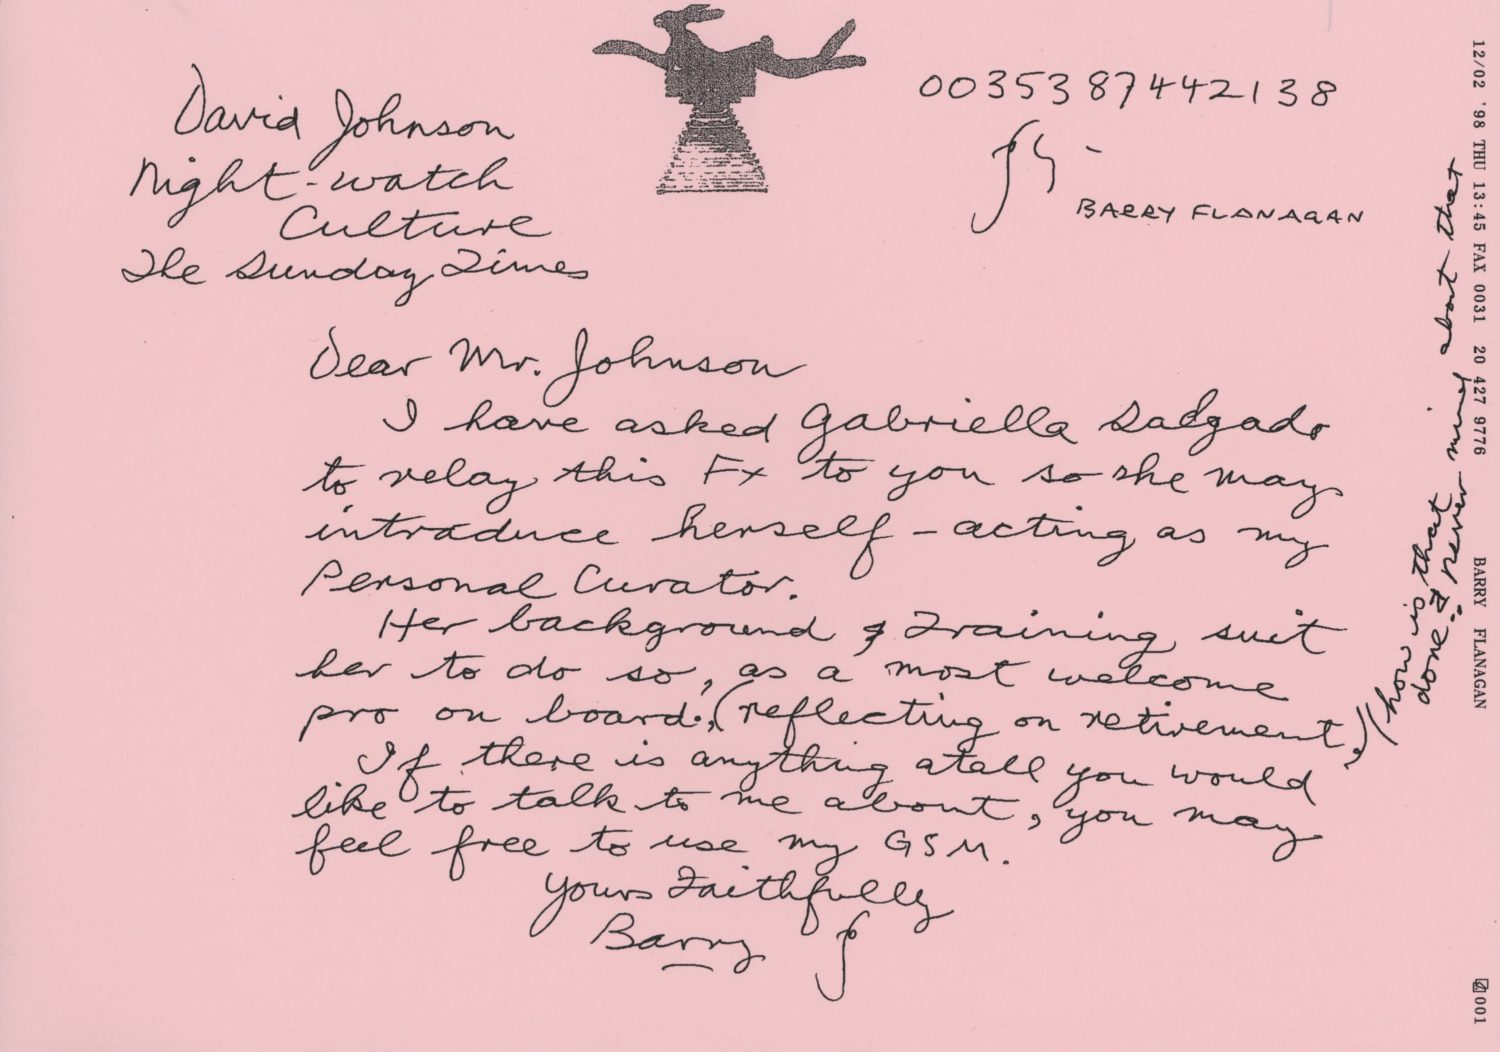 David Johnson
Night-watch
Culture
The Sunday Times
00353 87442138
BARRY FLANAGAN
Dear Mr. Johnson
I have asked Gabriella Salgado
to relay this Fx to you so she may
introduce herself - acting as my
Personal Curator.
Her background & Training suit
her to do so, as a most welcome
pro on board., (reflecting on retirement,)
If there is anything atall you would
like to talk to me about, you may
feel free to use my GSM.
Yours Faithfully
Barry f
(how is that
done. & never mind about that
12/02 '98 THU 13:45 FAX 0031 20 427 9776 BARRY FLANAGAN 001